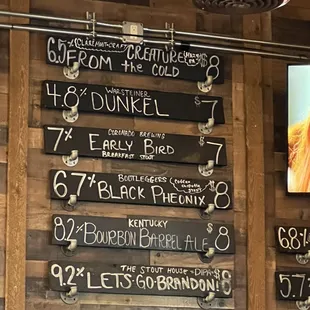 6.5% CLAREMONT CRAFT CREATURE $8
FROM THE COLD
WARSTEINER
4.8% DUNKEL $7
CORONADO BREWING
7% EARLY BIRD $7
BREAKFAST STOUT
BOOTLEGGERS
6.7% BLACK PHEONIX $8
KENTUCKY
8.2% BOURBON BARREL ALE $8
THE STOUT HOUSE - DIPA
9.2% LETS-GO-BRANDON! $8
6.8%
5.7%